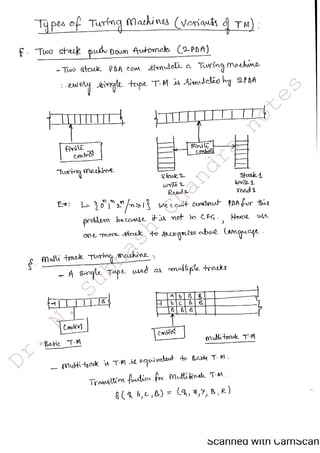 Types of Turing Machines (variants of TM):
Two stack push Down Automata (2-PDA)
- Two stack PDA can simulate a Turing machine
: every single tape T.M is simulated by 2PDA
Finite control
Finite control
Turing machine
stack 2 stack 1
write 2 write 1
Read 2 read 1
Ex: L = {0^n 1^n 2^n / n≥1} we can't construct PDA for this
problem because it is not in CFG, Hence use
one more stack to recognize above language.
Multi track Turing machine:
- A Single Tape used as multiple tracks
B
a b B B
b c b B
B B B
Control
Control
Basic T.M
multi track T.M
- Multi track is T.M is equivalent to Basic T.M.
Transition function for Multitrack T.M.
Dr. N. Subhash Chandra notes
Scanned with CamScan